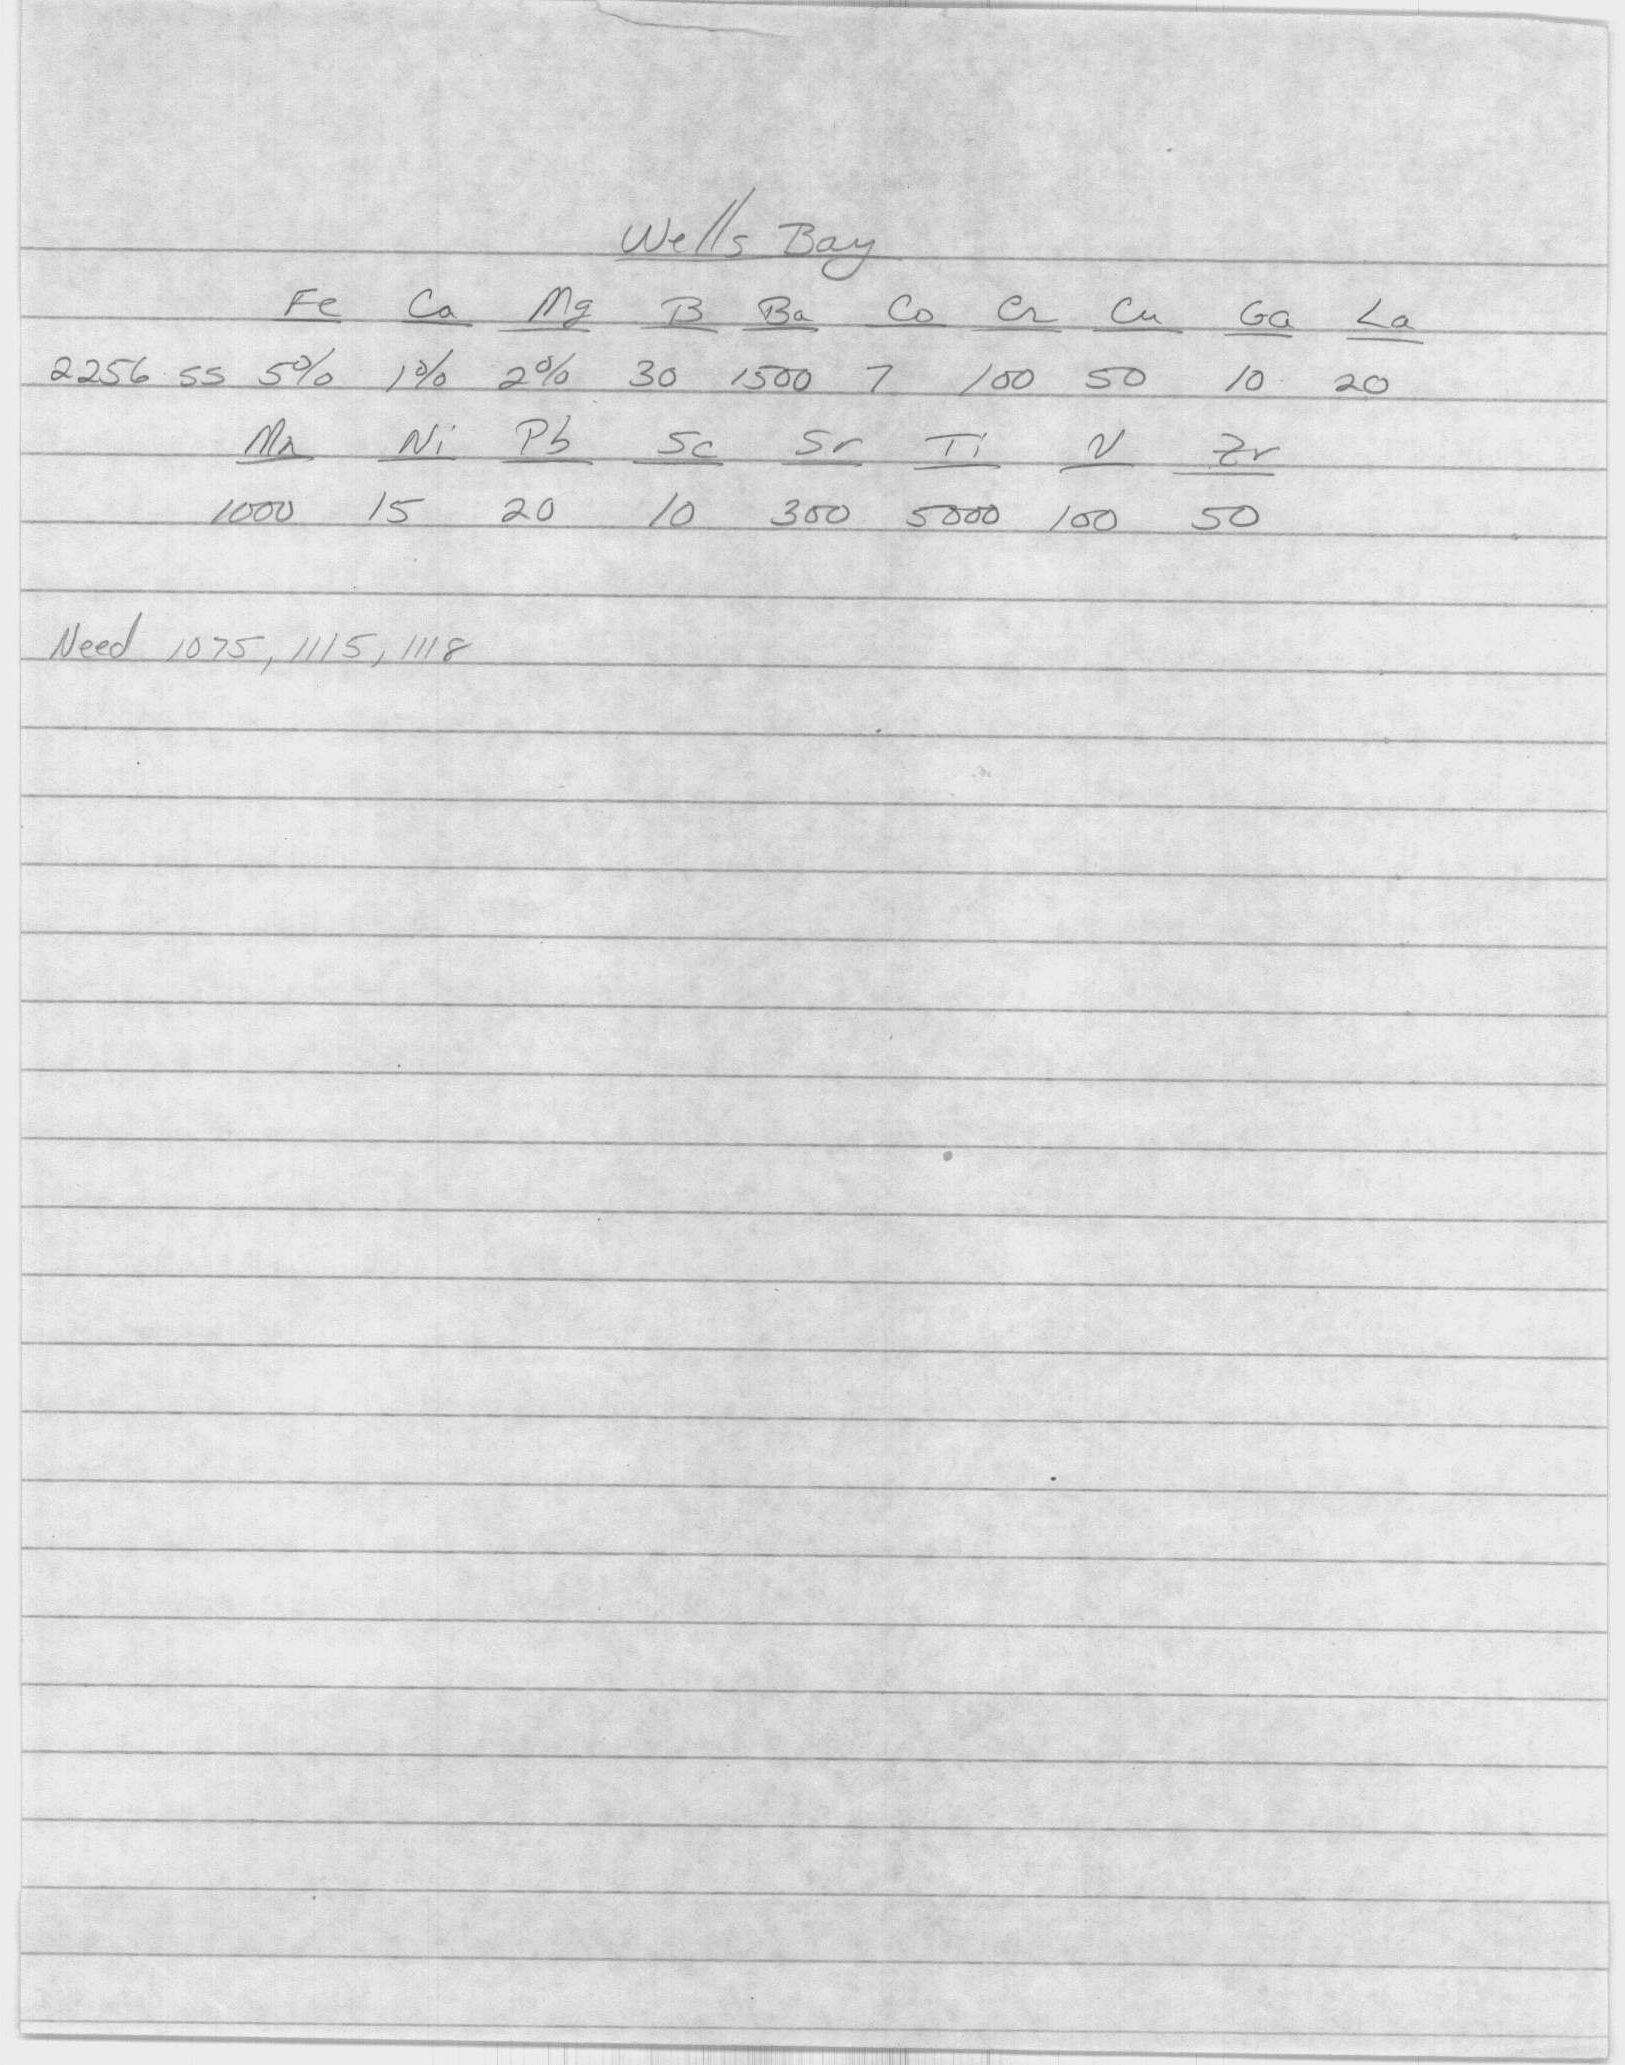 Wells Bay
Fe Ca Mg B Ba Co Cr Cu Ga La
2256 SS 5% 1% 2% 30 1500 7 100 50 10 20
Mn Ni Pb Sc Sr Ti V Zr
1000 15 20 10 300 5000 100 50
Need 1075, 1115, 1118